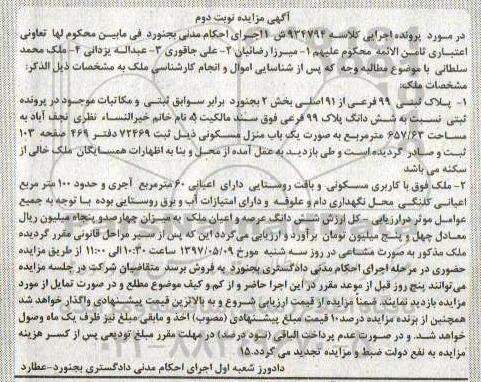 آگهی مزایده نوبت دوم
در مورد پرونده اجرایی کلاسه ۹۳۴۷۹۴ ش ۱ اجرای احکام مدنی بجنورد فی مابین محکوم لها تعاونی
اعتباری ثامن الائمه محکوم علیهم ۱- میرزا رضائیان ۲- علی جاقوری ۳- عبداله یزدانی ۴- ملک محمد
سلطانی با موضوع مطالبه وجه که پس از شناسایی اموال و انجام کارشناسی ملک به مشخصات ذیل الذکر:
مشخصات ملک:
۱- پلاک ثبتی ۹۹ فرعی از ۹۱ اصلی بخش ۲ بجنورد برابر سوابق ثبتی و مکاتبات موجود در پرونده
ثبتی نسبت به شش دانگ پلاک ۹۹ فرعی فوق سند مالکیت بنام خانم خیرالنساء نظری نجف آباد به
مساحت ۶۵۷/۶۳ مترمربع به صورت یک باب منزل مسکونی ذیل ثبت ۷۲۴۶۹ دفتر ۴۶۹ صفحه ۱۰۳
ثبت و صادر گردیده است و طی بازدید به عمل آمده از محل و بنا به اظهارات همسایگان ملک خالی از
سکنه می باشد
۲- ملک فوق با کاربری مسکونی و بافت روستایی دارای اعیانی ۶۰ مترمربع آجری و حدود ۱۰۰ متر مربع
اعیانی کلنگی محل نگهداری دام و علوفه و دارای امتیازات آب و برق روستایی بوده با توجه به جمیع
عوامل موثر درارزیابی - کل ارزش شش دانگ عرصه و اعیان ملک به میزان چهارصدو پنجاه میلیون ریال
معادل چهل و پنج میلیون تومان برآورد و ارزیابی می‌گردد این که پس از سیر مراحل قانونی مقرر گردیده
ملک مذکور به صورت مشاعی در روز سه شنبه مورخ ۱۳۹۷/۰۵/۰۹ ساعت ۱۰:۳۰ الی ۱۱:۰۰ از طریق مزایده
حضوری در مرحله اجرای احکام مدنی دادگستری بجنورد به فروش برسد متقاضیان شرکت در جلسه مزایده
می‌توانند پنج روز قبل از موعد مقرر در این اجرا حاضر و از کم و کیف موضوع مطلع و در صورت تمایل از مورد
مزایده بازدید نمایند. ضمنا مزایده از قیمت ارزیابی شروع و به بالاترین قیمت پیشنهادی واگذار خواهد شد
همچنین از برنده مزایده درصد ۱۰ قیمت مبلغ پیشنهادی (مصوب) اخذ و مابقی مبلغ نیز ظرف یک ماه وصول
خواهد شد و در صورت عدم پرداخت الباقی (نود درصد) در مهلت مقرر مبلغ تودیعی پس از کسر هزینه
مزایده به نفع دولت ضبط و مزایده تجدید می گردد.۱۵
دادورز شعبه اول اجرای احکام مدنی دادگستری بجنورد-عطارد